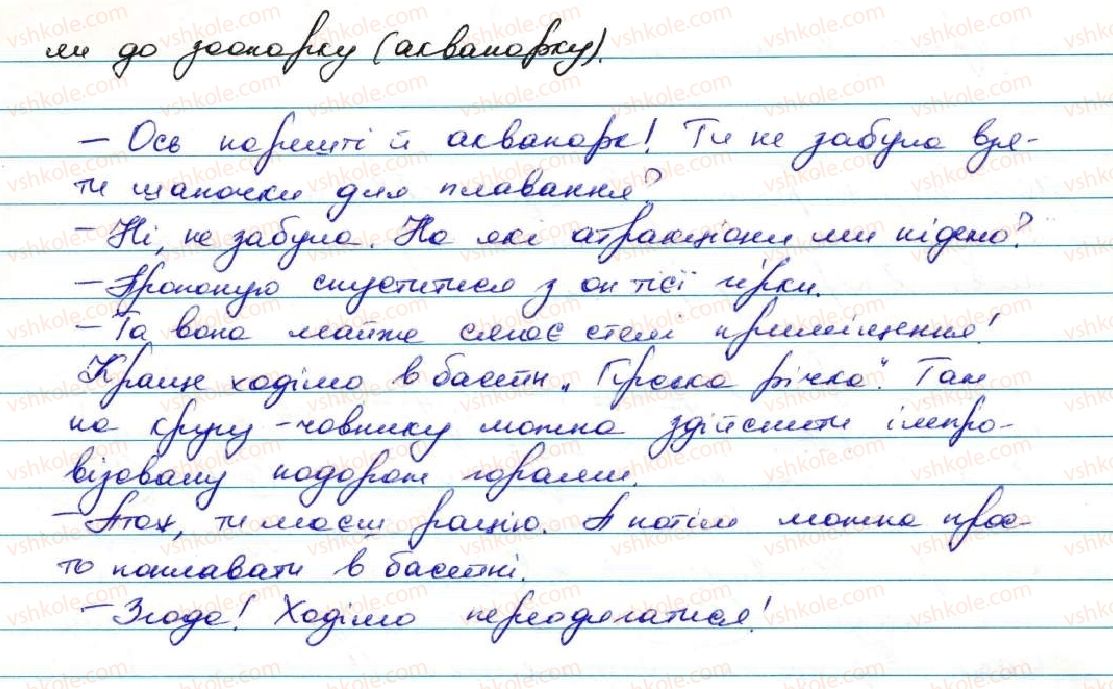 ли до зоопарку (аквапарку).
– Ось нарешті й аквапарк! Ти не забула взя-
ти шапочки для плавання?
– Ні, не забула. На які атракціони ми підемо?
– Пропоную спуститися з он тієї гірки.
– Та вона майже сягає стелі приміщення!
Краще ходімо в басейн „Гірська річка". Там
на крузі-човнику можна здійснити імпро-
візовану подорож горами.
– Атож, ти маєш рацію. А потім можна прос-
то поплавати в басейні.
– Згода! Ходімо переодягатися!